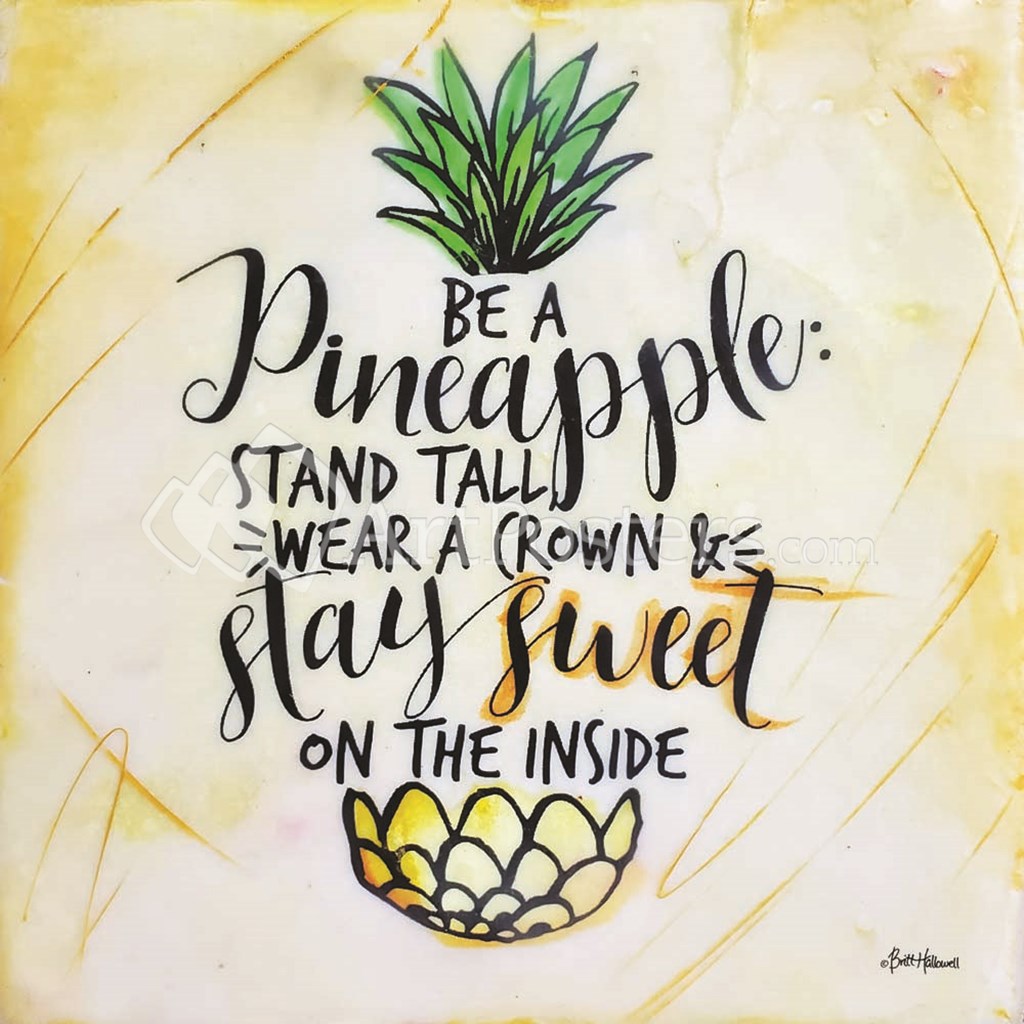 BE A
Pineapple:
STAND TALL,
WEAR A CROWN &
stay sweet
ON THE INSIDE
ArtPosters.com
©Britt Hallowell